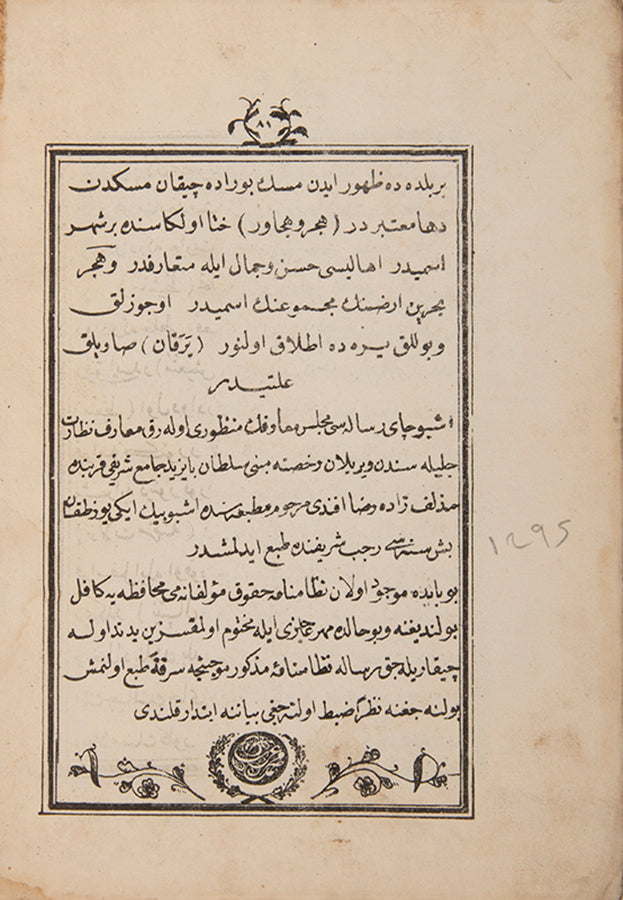 ٨١
بر بلده ده ظهور ایدن مسك بوراده چیقان مسکدن
دها معتبر در (هجر وهجاور) ختا اولکاسنده بر شهر
اسمیدر اهالیسی حسن وجمال ایله متعارفدر وهجر
بحرین ارضنك مجموعنك اسمیدر اوجوزلق
وبوللق یره ده اطلاق اولنور (یَرَقان) صاریلق
علتیدر
اشبو چای رساله سی مجلس معارفك منظوری اوله رق معارف نظارت
جلیله سندن ویریلان رخصته مبنی سلطان بایزید جامع شریفی قربنده
رضا افندی مرحوم مطبعه سنده اشبو بیك ایکی یوز طقسان
بش سنه سی رجب شریفنده طبع ایدلمشدر
بوبابده موجود اولان نظامنامه حقوق مؤلفانه می محافظه یه کافل
بولندیغنه وبو حالده مهر عاجزی ایله مختوم اولمقسزین یدنداوله
چیقاریله جق رساله نظامنامۀ مذکور موجبنجه سرقةً طبع اولنمش
بولنه جغنه نظراً ضبط اولنه جغی بیاننه ابتدار قلندی
1295